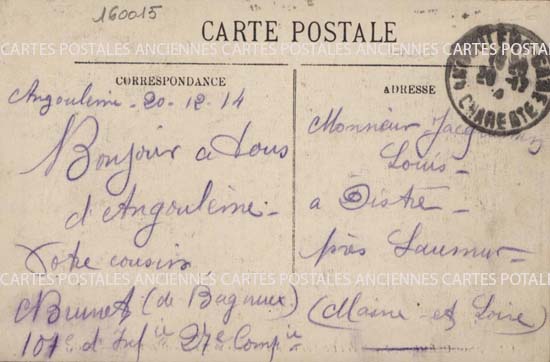 160015
CARTE POSTALE
CORRESPONDANCE
Angoulême 20-12-14
Bonjour a tous
d'Angoulême-
Votre cousin
Brunet (de Bagneux)
107e d'Infie 27e Compie
ADRESSE
Monsieur
Louis-
a Distré-
près Saumur-
(Maine et Loire)
CHARENTE
CARTES POSTALES ANCIENNES CARTES POSTALES ANCIENNES CARTES POSTALES
CARTES POSTALES ANCIENNES CARTES POTALES ANCIENNES CARTES POSTALES